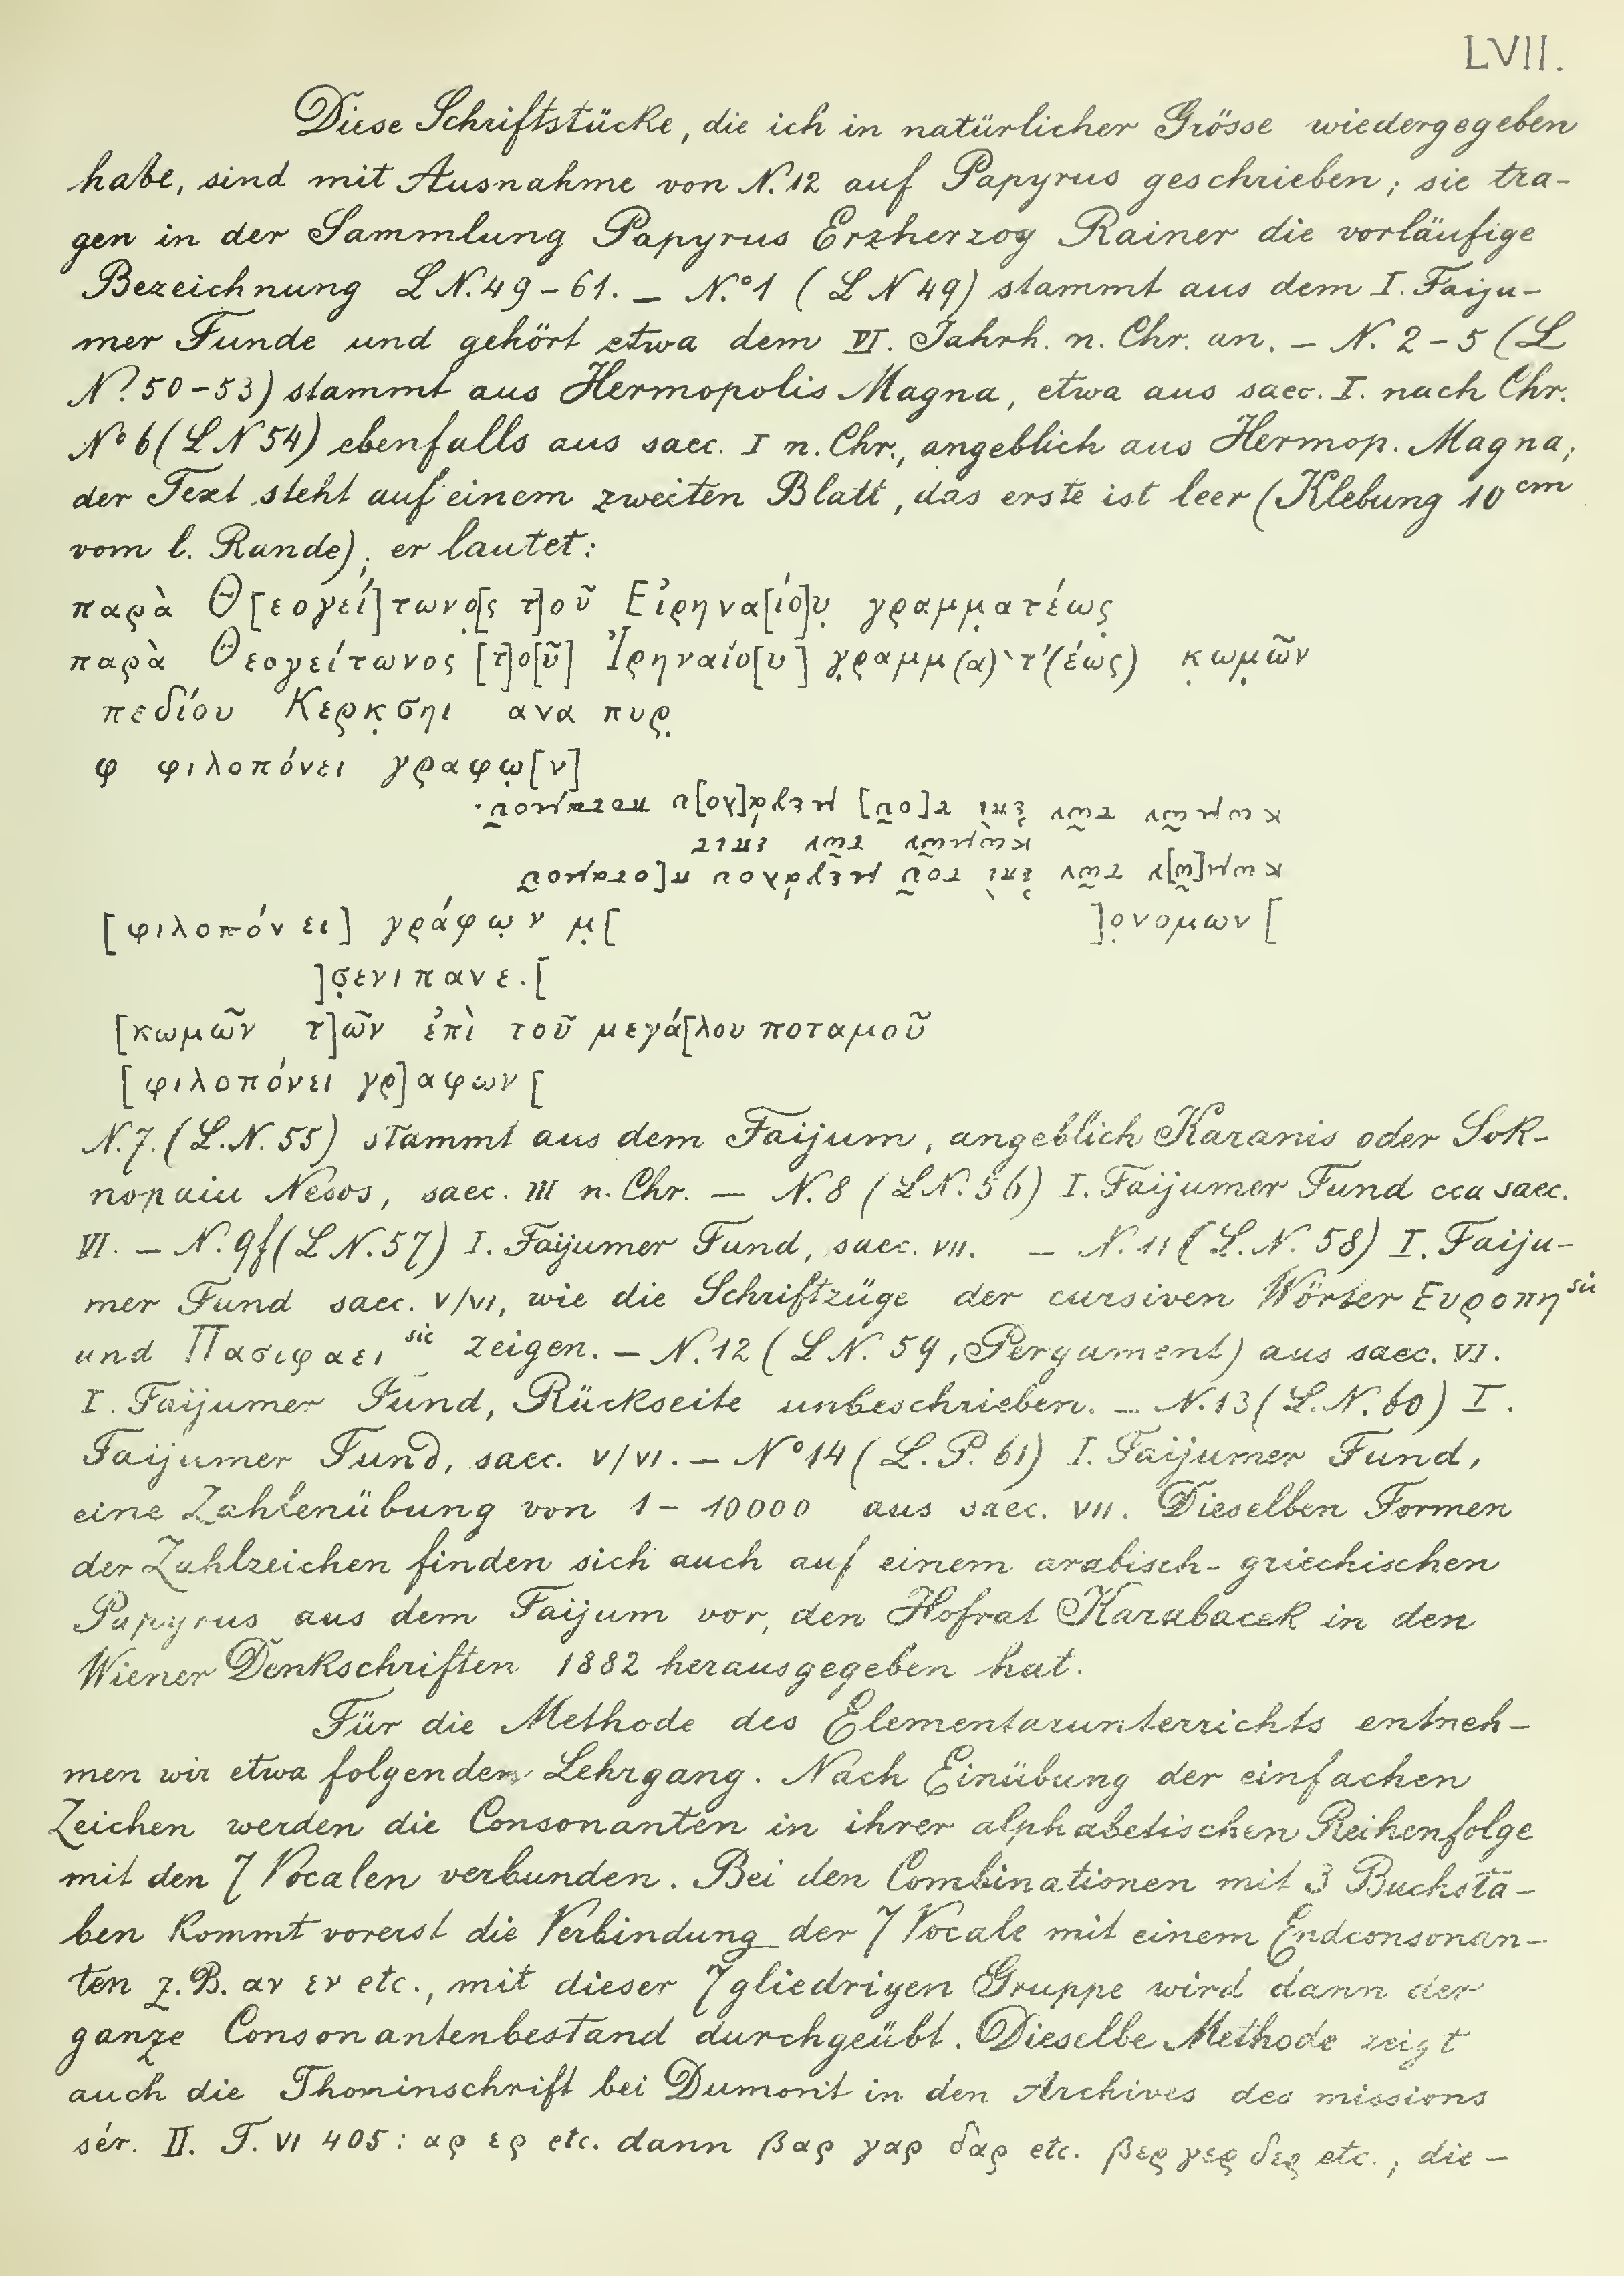 LVII.
Diese Schriftstücke, die ich in natürlicher Grösse wiedergegeben
habe, sind mit Ausnahme von N. 12 auf Papyrus geschrieben; sie tra-
gen in der Sammlung Papyrus Erzherzog Rainer die vorläufige
Bezeichnung L N. 49-61. – N.° 1 (L N 49) stammt aus dem I. Faiju-
mer Funde und gehört etwa dem VI. Jahrh. n. Chr. an. – N. 2-5 (L
N° 50-53) stammt aus Hermopolis Magna, etwa aus saec. I. nach Chr.
N° 6 (L N 54) ebenfalls aus saec. I n. Chr., angeblich aus Hermop. Magna;
der Text steht auf einem zweiten Blatt, das erste ist leer (Klebung 10 cm
vom l. Rande); er lautet:
παρὰ Θ[εογεί]τωνο̣[ς τ]οῦ Εἰρηνα[ίο]υ̣ γραμμ̣ατέως̣
παρὰ Θεογείτωνος [τ]ο[ῦ] Ἰρηναίο[υ] γ̣ραμμ(α)`τ´(έως) κ̣ωμ̣ῶν
πεδίου Κερκ̣σηι ανα πυρ̣
φ φιλοπόνει γραφω̣[ν]
κωμῶν τῶν ἐπὶ τ[οῦ] μεγά[λο]υ ποταμοῦ.
κωμῶν τῶν επιτ
κωμ[ῶ]ν τῶν ἐπὶ τοῦ μεγάλου π[οταμοῦ
[φιλοπόνει] γράφω̣ν μ̣[ ]ο̣νομων[
]σ̣ενιπανε.[
[κωμῶν τ]ῶν ἐπὶ τοῦ μεγά[λου ποταμοῦ
[φιλοπόνει γρ]αφων[
N. 7. (L. N. 55) stammt aus dem Faijum, angeblich Karanis oder Sok-
nopaiu Nesos, saec. III n. Chr. – N. 8 (L N. 56) I. Faijumer Fund cca saec.
VI. – N. 9f (L N. 57) I. Faijumer Fund, saec. VII. – N. 11 (L. N. 58) I. Faiju-
mer Fund saec. V/VI, wie die Schriftzüge der cursiven Wörter Ευροπη sic
und Πασιφαει sic zeigen. – N. 12 (L N. 59, Pergament) aus saec. VI.
I. Faijumer Fund, Rückseite unbeschrieben. – N. 13 (L. N. 60) I.
Faijumer Fund, saec. V/VI. – N° 14 (L. P. 61) I. Faijumer Fund,
eine Zahlenübung von 1 – 10000 aus saec. VII. Dieselben Formen
der Zahlzeichen finden sich auch auf einem arabisch-griechischen
Papyrus aus dem Faijum vor, den Hofrat Karabacek in den
Wiener Denkschriften 1882 herausgegeben hat.
Für die Methode des Elementarunterrichts entneh-
men wir etwa folgenden Lehrgang. Nach Einübung der einfachen
Zeichen werden die Consonanten in ihrer alphabetischen Reihenfolge
mit den 7 Vocalen verbunden. Bei den Combinationen mit 3 Buchsta-
ben kommt vorerst die Verbindung der 7 Vocale mit einem Endconsonan-
ten z. B. αν εν etc., mit dieser 7gliedrigen Gruppe wird dann der
ganze Consonantenbestand durchgeübt. Dieselbe Methode zeigt
auch die Thoninschrift bei Dumont in den Archives des missions
sér. II. T. VI 405: αρ ερ etc. dann βαρ γαρ δαρ etc. βερ γερ δερ etc.; die-